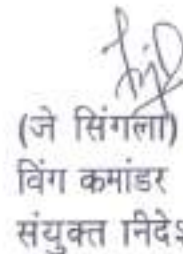 (जे सिंगला)
विंग कमांडर
संयुक्त